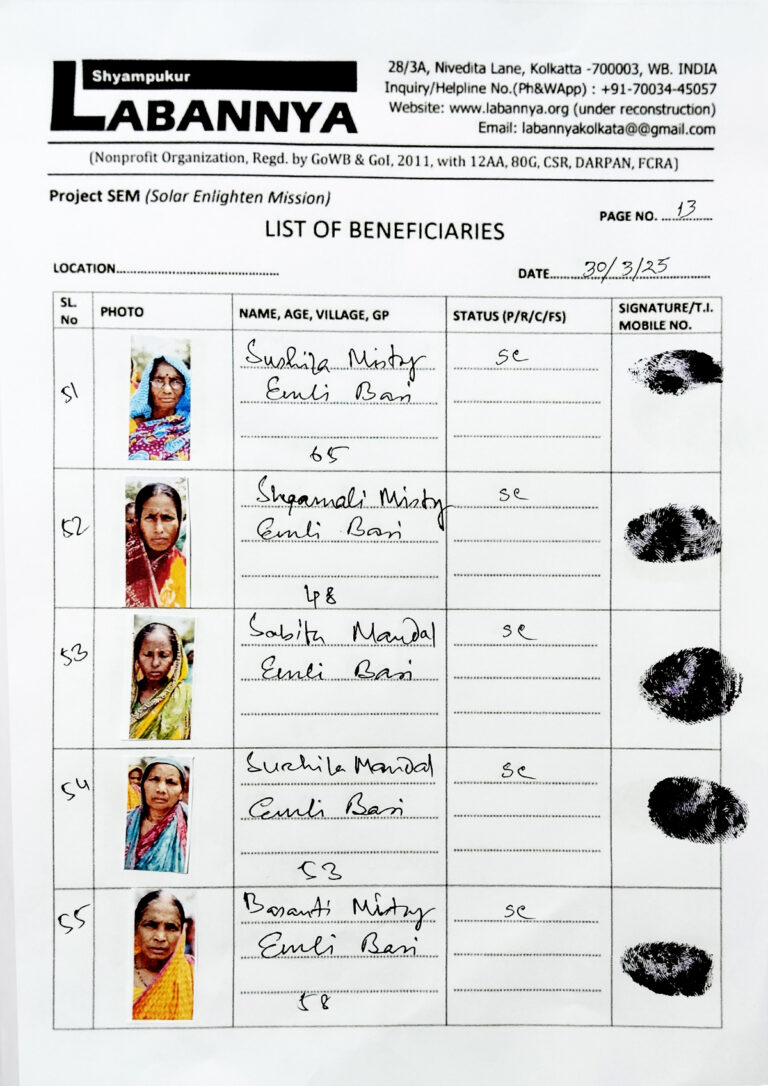 Shyampukur
LABANNYA
28/3A, Nivedita Lane, Kolkatta -700003, WB. INDIA
Inquiry/Helpline No.(Ph&WApp) : +91-70034-45057
Website: www.labannya.org (under reconstruction)
Email: labannyakolkata@@gmail.com
(Nonprofit Organization, Regd. by GoWB & GoI, 2011, with 12AA, 80G, CSR, DARPAN, FCRA)
Project SEM (Solar Enlighten Mission)
PAGE NO. 13
LIST OF BENEFICIARIES
LOCATION
DATE 30/3/25
SL. No PHOTO NAME, AGE, VILLAGE, GP STATUS (P/R/C/FS) SIGNATURE/T.I. MOBILE NO.
51 Sushila Mistry SC
Emli Bari
65
52 Shyamali Mistry SC
Emli Bari
48
53 Sabita Mandal SC
Emli Bari
54 Sushila Mandal SC
Emli Bari
53
55 Basanti Mistry SC
Emli Bari
58